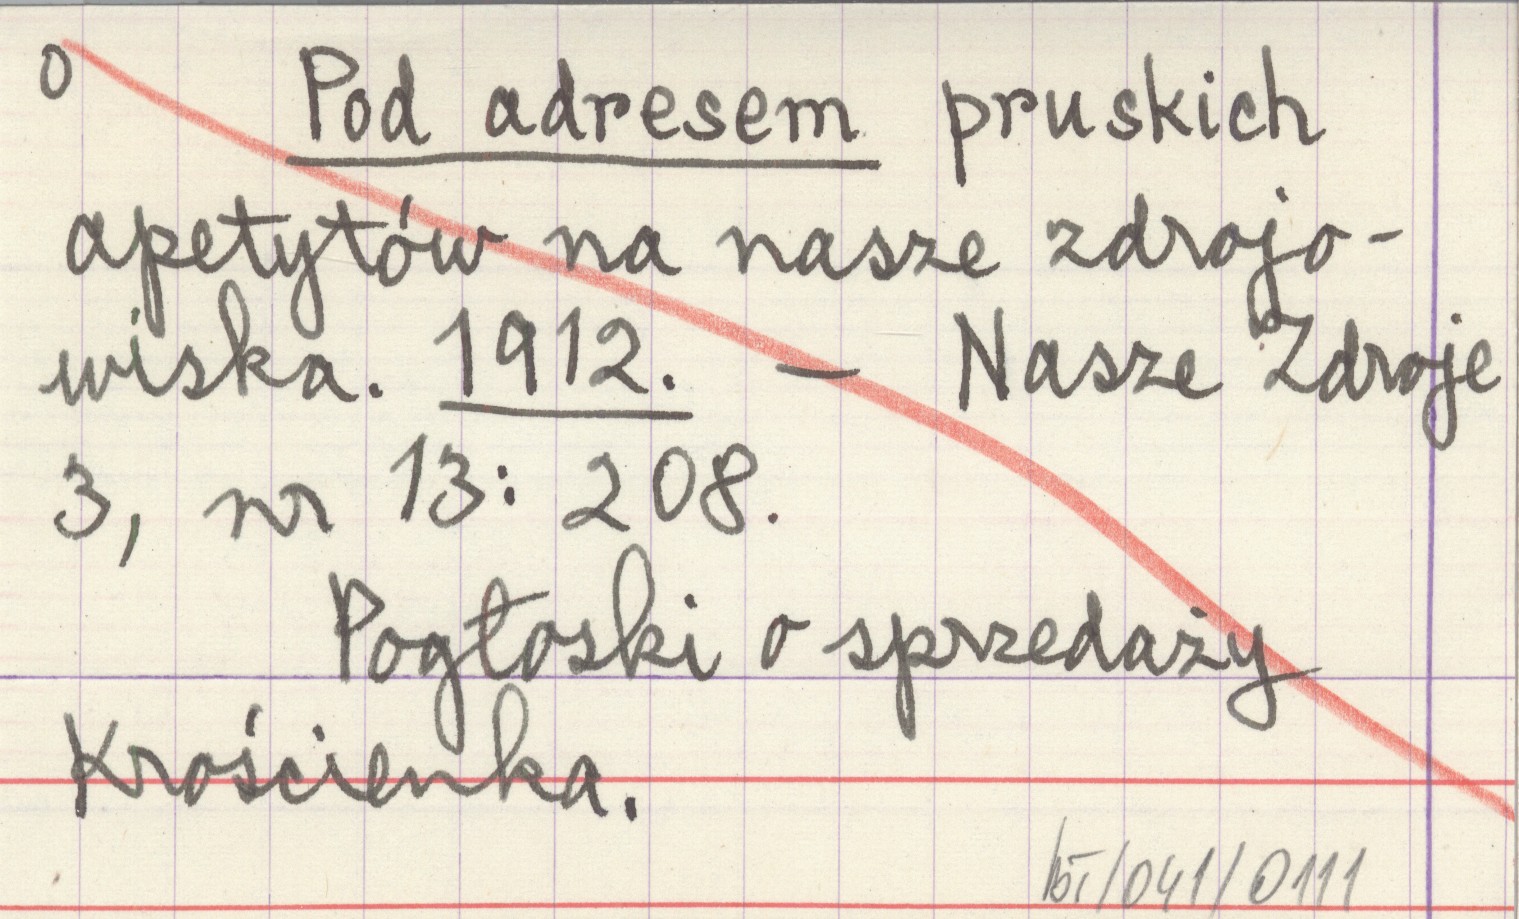 o Pod adresem pruskich
apetytów na nasze zdrojo-
wiska. 1912. — Nasze Zdroje
3, nr 13: 208.
Pogłoski o sprzedaży
Krościenka.
/041/0111